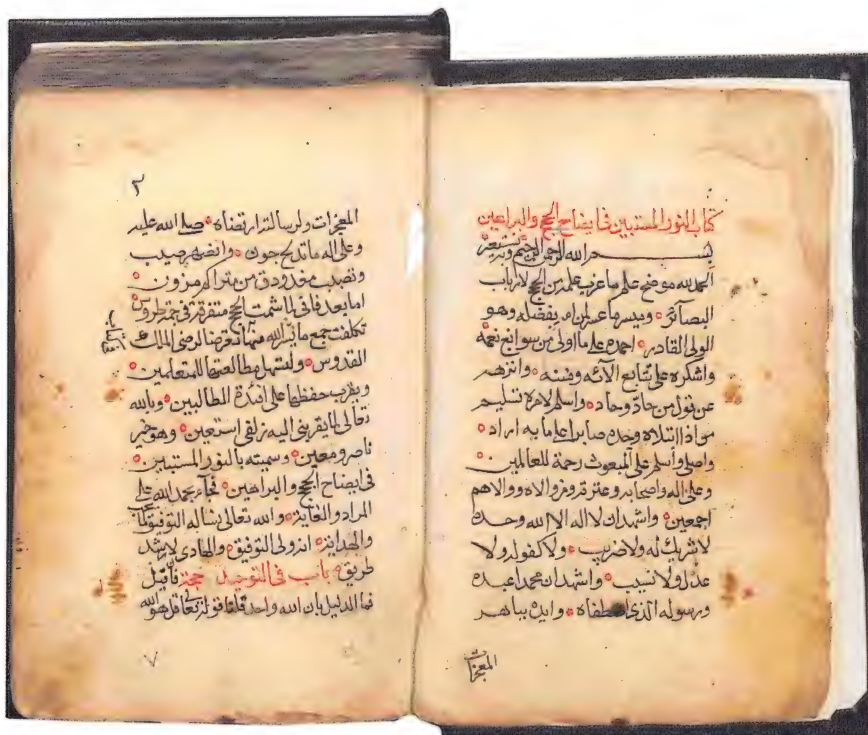 كتاب النور المستبين في ايضاح الحجج والبراهين
بسم الله الرحمن الرحيم وبه نستعين
الحمد لله موضح علم ما عزب علمه من الحجج لارباب
البصآئر وميسر ما عسر لمن ام بفضله وهو
الولي القادر احمده على ما اولى من سوابغ نعمه
واشكره على تتابع الآئه ومننه وانزهه
عن قول من حادّ وحاد واسلم لامره تسليم
من اذا ابتلاه وجده صابرا على ما به اراد
واصلي وأسلم على المبعوث رحمة للعالمين
وعلى اله واصحابه وعترته ومن والاه ووالاهم
اجمعين واشهد ان لا اله الا الله وحده
لا شريك له ولا ضريب ولا كفو له ولا
عدل ولا نسيب واشهد ان محمدا عبده
ورسوله الذي اصطفاه وايده بباهر
المعجزات
٢
المعجزات ولرسالته ارتضاه صلى الله عليه
وعلى اله ما تدلج جون وانضهر صيب
ونصب مغدودق من متراكم مزون
اما بعد فاني لما شمت الحجج متفرقة في جمة طروس
تكلفت جمع ما يسر الله منها تعرضا لرضى المالك
القدوس ولتسهل مطالعتها للمتعلمين
ويقرب حفظها على افئدة الطالبين وبالله
تعالى لما يقربني اليه زلفى استعين وهو خير
ناصر ومعين وسميته بالنور المستبين
في ايضاح الحجج والبراهين فجآء بحمد الله على
المراد والغاية والله تعالى نساله التوفيق لما يحب
والهداية انه ولي التوفيق والهادي لارشد
طريق باب في التوحيد حجة فان قيل
فما الدليل بان الله واحد قلنا قوله تعالى قل هو الله